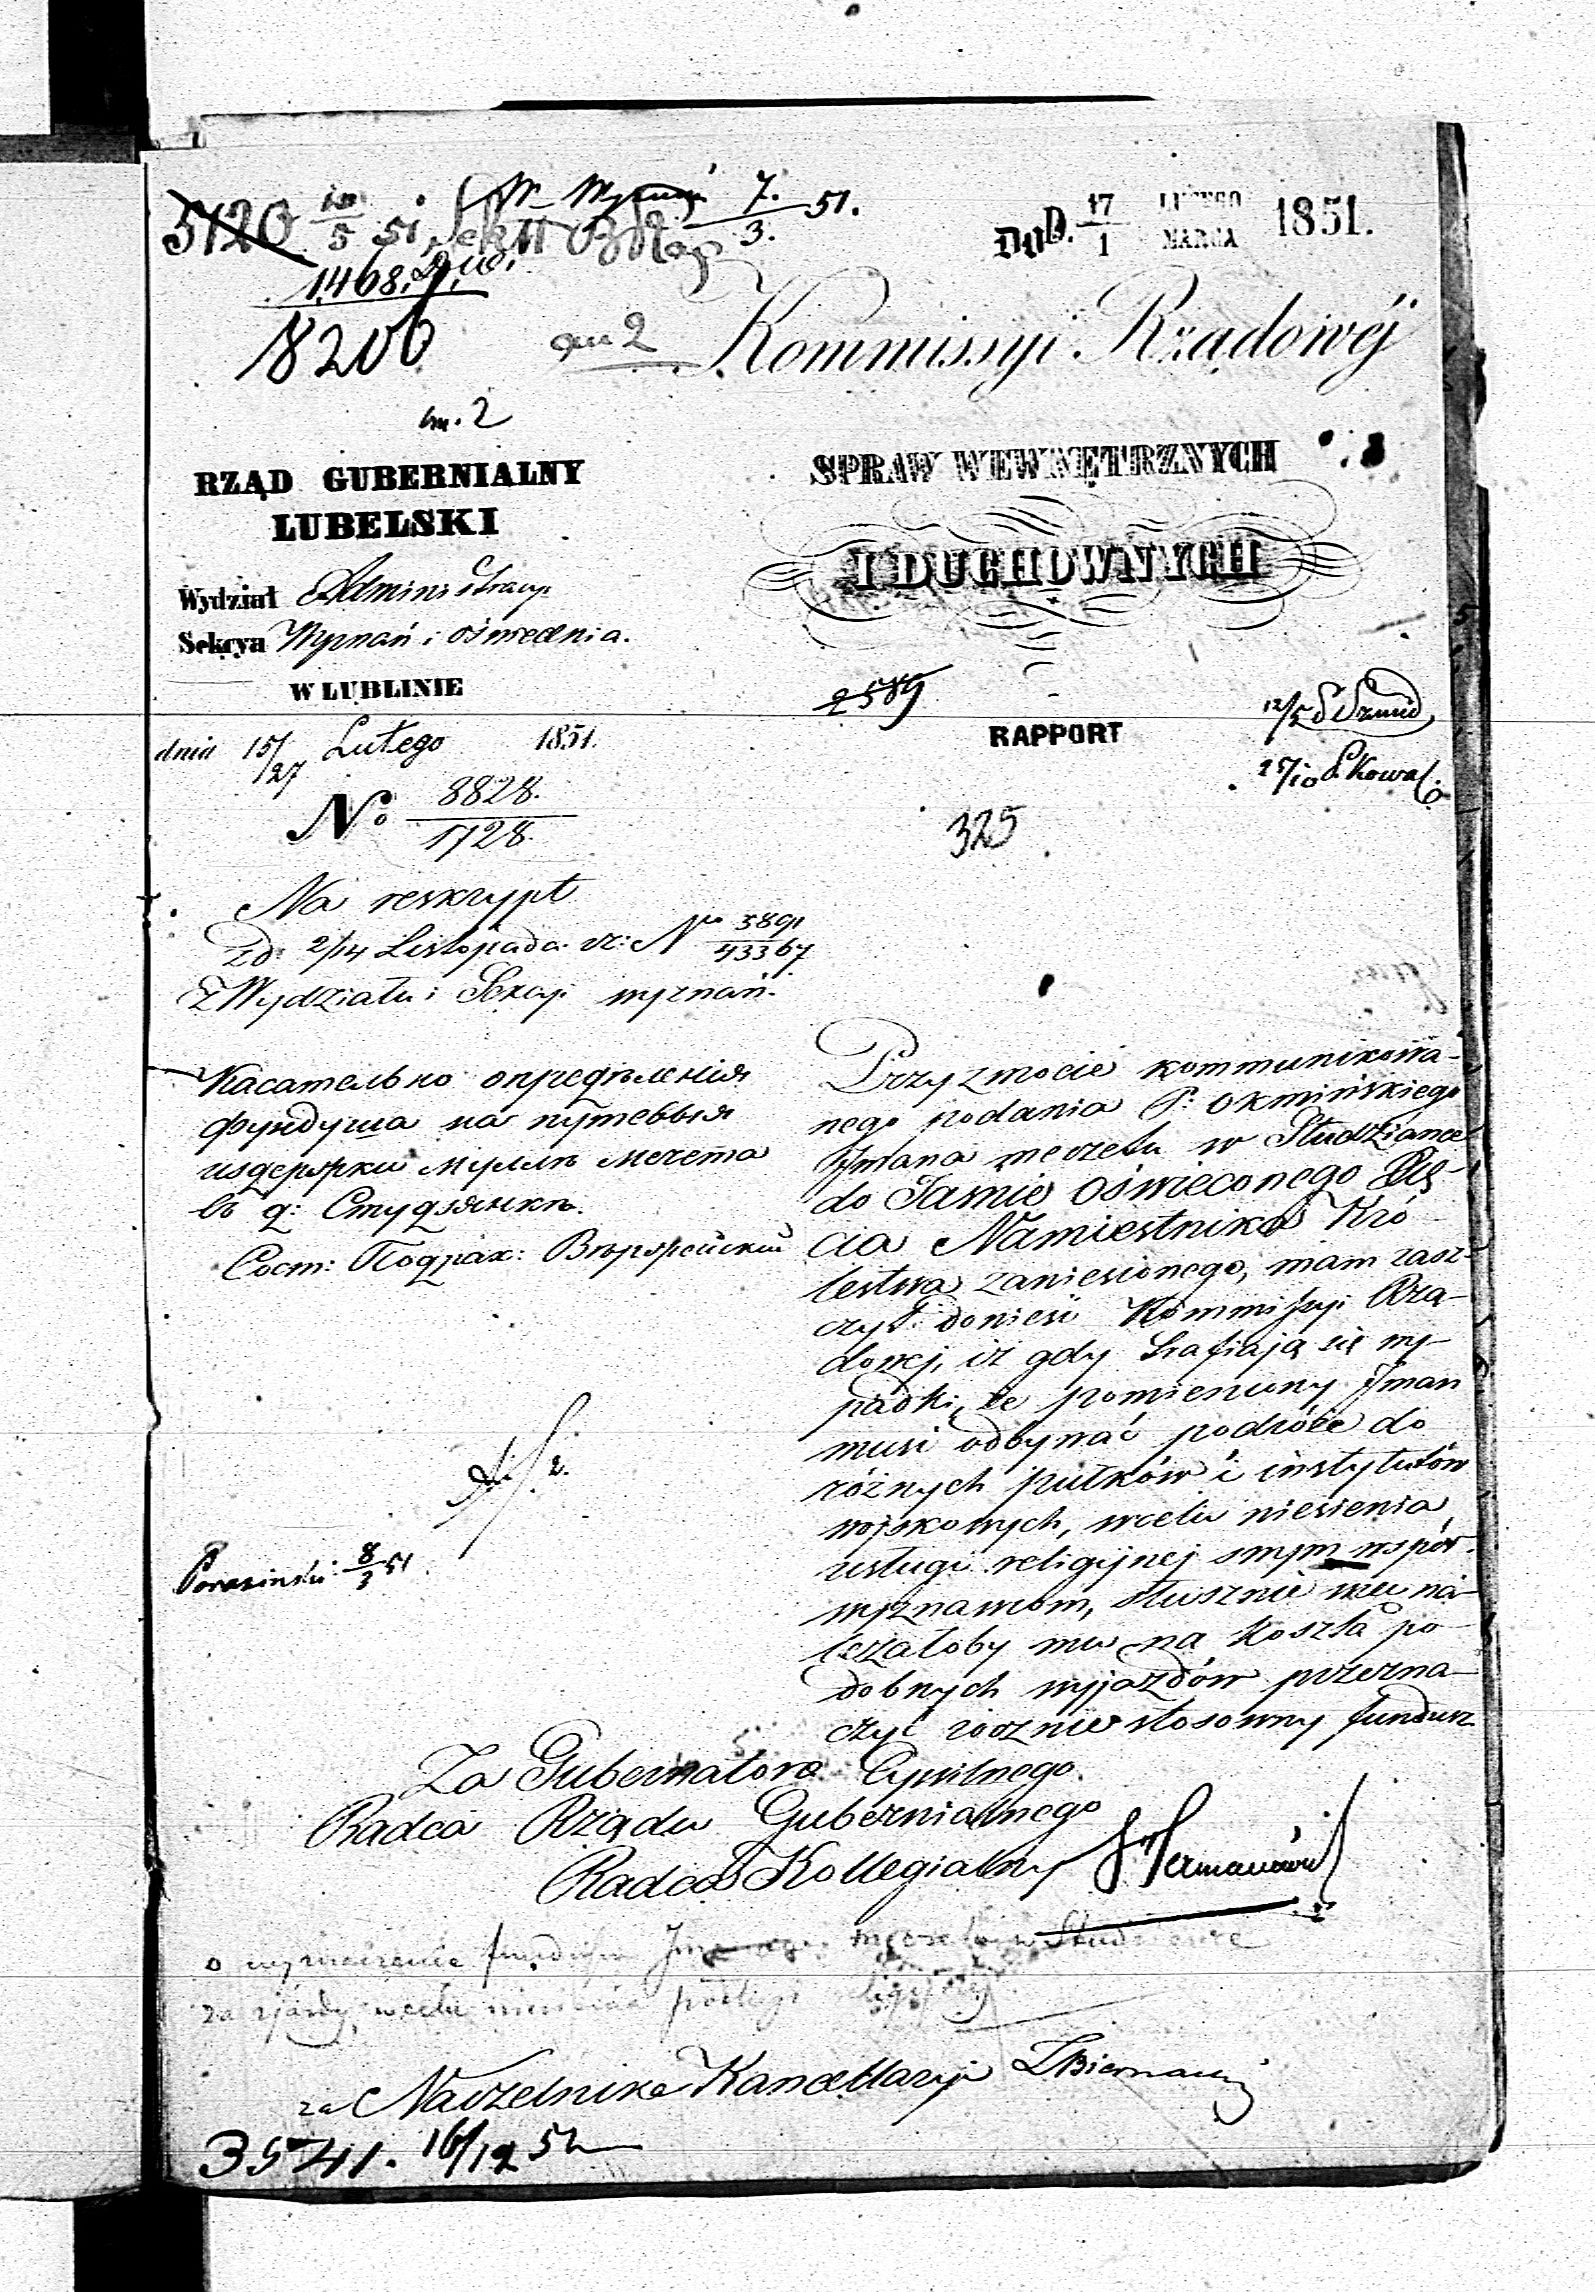 5120 10/5 51 Sek II
W. Wyznań 7./3. 51.
DOD. 17/1 LUTEGO/MARCA 1851.
1468.
8206
an 2
Kommissyi Rządowéj
an. 2
RZĄD GUBERNIALNY
LUBELSKI
SPRAW WEWNĘTRZNYCH
I DUCHOWNYCH
Wydział Administracyi
Sekcya Wyznań i oświecenia.
W LUBLINIE
2589
dnia 15/27 Lutego 1851.
RAPPORT
12/5 Szmid
25/10 Kowal
No 8828./1728.
325
Na reskrypt
z d: 2/14 Listopada r: z: No 3891/43367
z Wydziału i Sekcyi wyznań.
Касательно определѣнія
фундуша на путевыя
издержки Муллѣ мечета
въ д: Студзянкѣ.
Przy zwrocie kommunikowa-
nego podania P: Okmińskiego
Imana meczetu w Studziance
do Jaśnie Oświeconego Xię-
cia Namiestnika Kró-
lestwa zaniesionego, mam zasz-
czyt donieść Kommissyi Rzą-
dowej, iż gdy trafiają się wy-
padki, że pomieniony Iman
musi odbywać podróże do
różnych pułków i instytutów
wojskowych, w celu niesienia
usługi religijnej swym współ-
wyznawcom, słusznie więc na-
leżałoby mu na koszta po-
dobnych wyjazdów przezna-
czyć rocznie stosowny fundusz
8/3 51
Za Gubernatora Cywilnego
Radca Rządu Gubernialnego
Radca Kollegialny Hermanowicz
o wyznaczenie funduszu meczetu w Studziance
za zjazdy w celu niesienia posługi religijnej
za Naczelnika Kancellaryi Biernacki
3541. 16/12 52